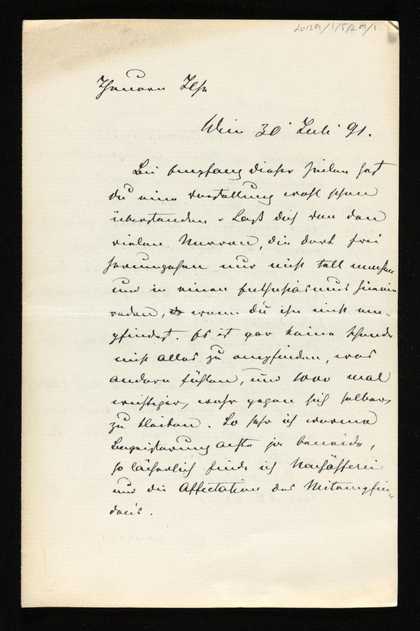 Wien 30 Juli 91.
Bei Empfang dieser Zeilen hast
du eine Vorstellung wohl schon
überstanden. Laß dich von den
vielen Narren, die dort frei
herumgehen nur nicht toll machen
und in einen Enthusiasmus hinein
reden, wenn du ihn nicht em-
pfindest. Es ist gar keine Schande
nicht alles zu empfinden, was
andere fühlen, und was mal
wichtiger, wahr gegen sich selber
zu bleiben. So sehr ich warme
Begeisterung achte ja beneide,
so lächerlich finde ich Nachäfferei
und die Affectation des Mitempfin-
dens.